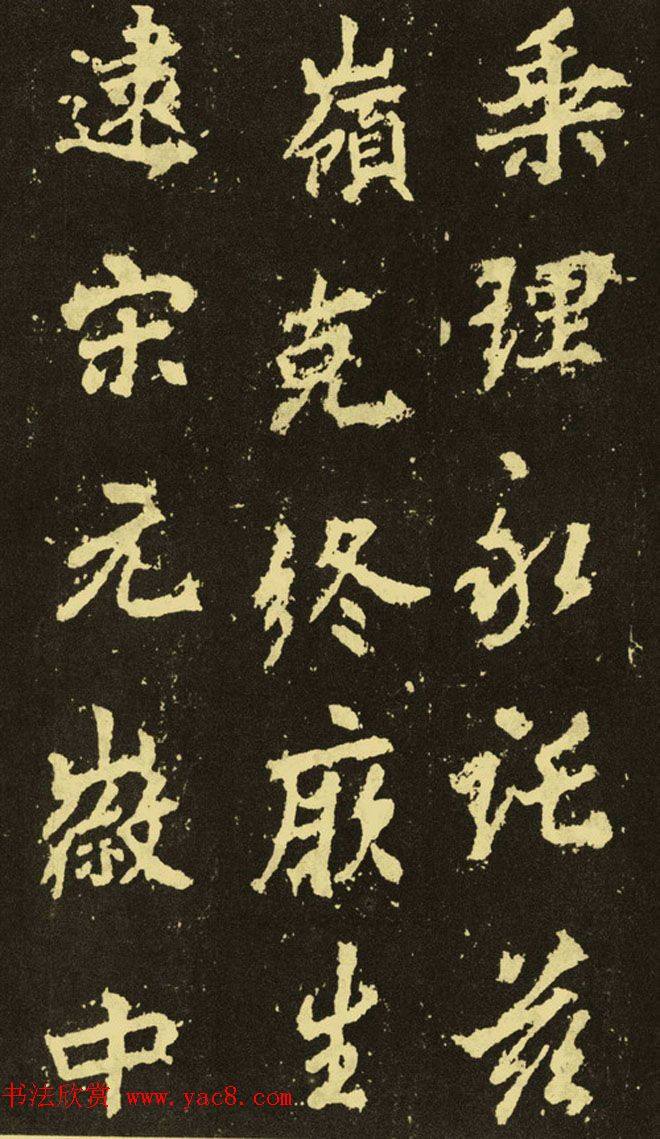 乗理永託茲
嶺克終厥生
逮宋元徽中
书法欣赏 www.yac8.com